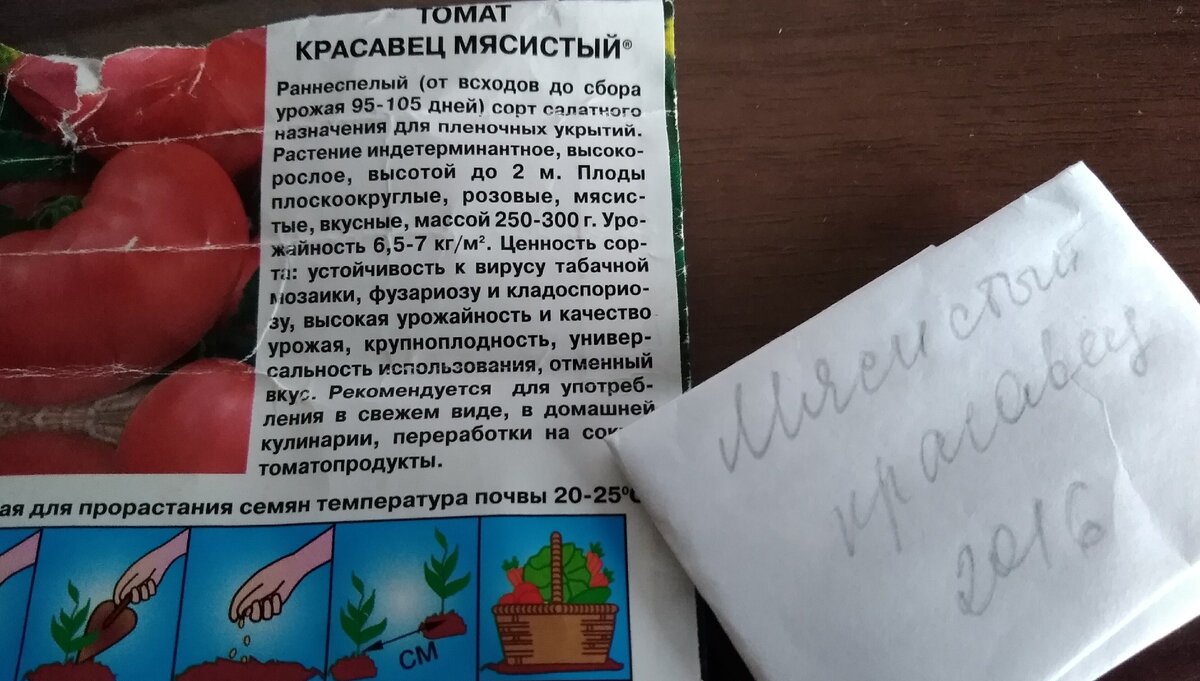 ТОМАТ
КРАСАВЕЦ МЯСИСТЫЙ®
Раннеспелый (от всходов до сбора
урожая 95-105 дней) сорт салатного
назначения для пленочных укрытий.
Растение индетерминантное, высоко-
рослое, высотой до 2 м. Плоды
плоскоокруглые, розовые, мясис-
тые, вкусные, массой 250-300 г. Уро-
жайность 6,5-7 кг/м². Ценность сор-
та: устойчивость к вирусу табачной
мозаики, фузариозу и кладоспорио-
зу, высокая урожайность и качество
урожая, крупноплодность, универ-
сальность использования, отменный
вкус. Рекомендуется для употреб-
ления в свежем виде, в домашней
кулинарии, переработки на
томатопродукты.
для прорастания семян температура почвы 20-25°С
СМ
Мясистый
красавец
2016